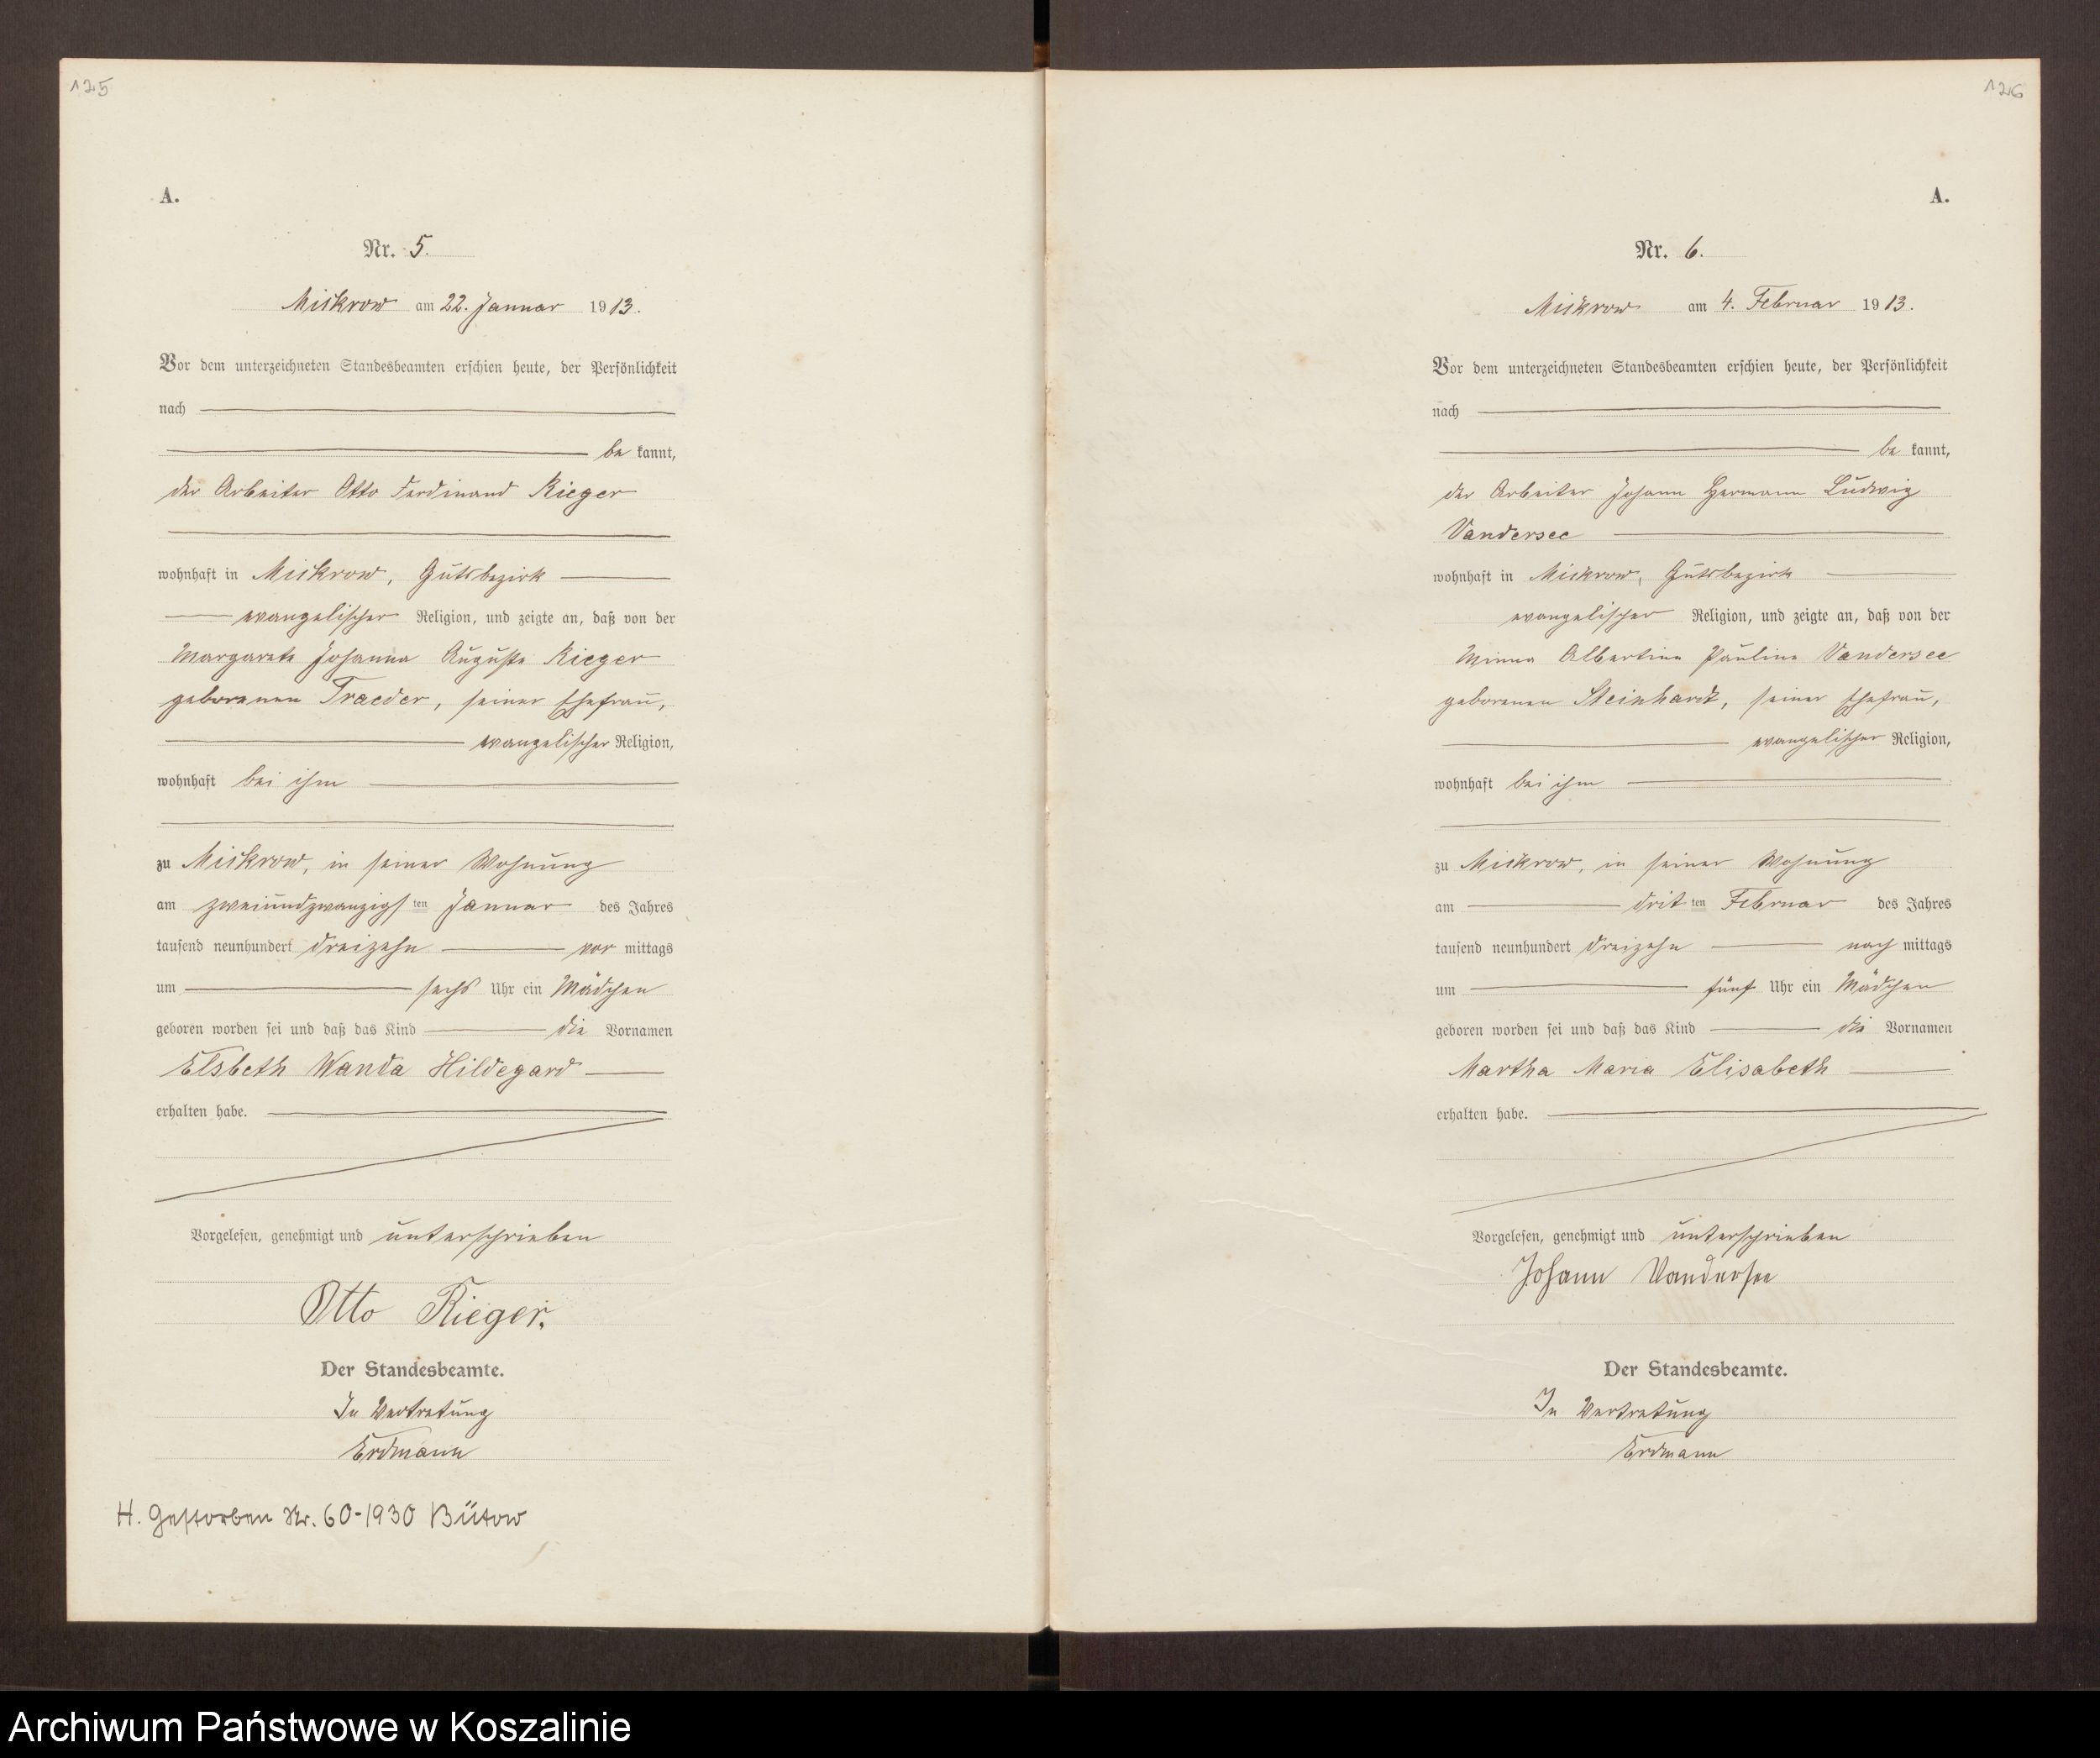 125
A.
Nr. 5.
Miskrow am 22. Januar 1913.
Vor dem unterzeichneten Standesbeamten erschien heute, der Persönlichkeit
nach
be kannt,
der Arbeiter Otto Ferdinand Rieger
wohnhaft in Miskrow, Gutsbezirk
evangelischer Religion, und zeigte an, daß von der
Margarete Johanna Auguste Rieger
geborenen Traeder, seiner Ehefrau,
evangelischer Religion,
wohnhaft bei ihm
zu Miskrow, in seiner Wohnung
am zweiundzwanzigsten Januar des Jahres
tausend neunhundert dreizehn vor mittags
um sechs Uhr ein Mädchen
geboren worden sei und daß das Kind die Vornamen
Elsbeth Wanda Hildegard
erhalten habe.
Vorgelesen, genehmigt und unterschrieben
Otto Rieger.
Der Standesbeamte.
In Vertretung
Erdmann
H. Gestorben Nr. 60-1930 Bütow
126
A.
Nr. 6.
Miskrow am 4. Februar 1913.
Vor dem unterzeichneten Standesbeamten erschien heute, der Persönlichkeit
nach
be kannt,
der Arbeiter Johann Hermann Ludwig
Vandersee
wohnhaft in Miskrow, Gutsbezirk
evangelischer Religion, und zeigte an, daß von der
Minna Albertine Pauline Vandersee
geborenen Steinhardt, seiner Ehefrau,
evangelischer Religion,
wohnhaft bei ihm
zu Miskrow, in seiner Wohnung
am dritten Februar des Jahres
tausend neunhundert dreizehn nach mittags
um fünf Uhr ein Mädchen
geboren worden sei und daß das Kind die Vornamen
Martha Maria Elisabeth
erhalten habe.
Vorgelesen, genehmigt und unterschrieben
Johann Vandersee
Der Standesbeamte.
In Vertretung
Erdmann
Archiwum Państwowe w Koszalinie